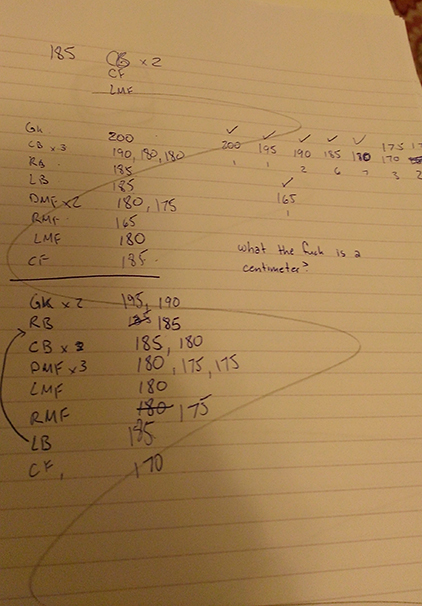 185 CB x 2
CF
LMF
GK 200
CB x 3 190, 180, 180
RB 185
LB 185
DMF x 2 180, 175
RMF 165
LMF 180
CF 185
✓ ✓ ✓ ✓ ✓
200 195 190 185 180 175
170
1 1 2 6 7 3 2
✓
165
1
what the fuck is a
centimeter?
GK x 2 195, 190
RB 185
CB x 2 185, 180
DMF x 3 180, 175, 175
LMF 180
RMF 180 175
LB 185
CF, 170